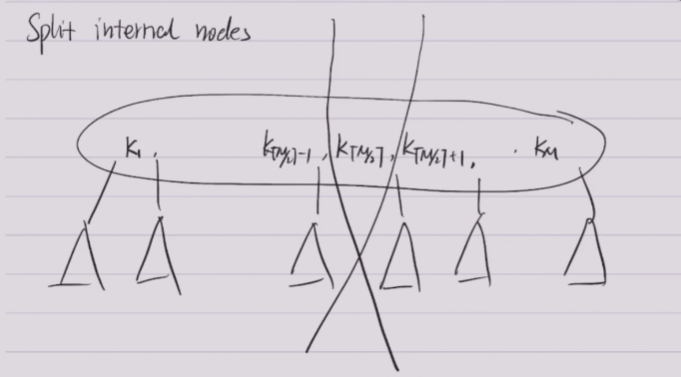 Split internal nodes
K₁, K⌈M/2⌉-1, K⌈M/2⌉, K⌈M/2⌉+1, . Kм